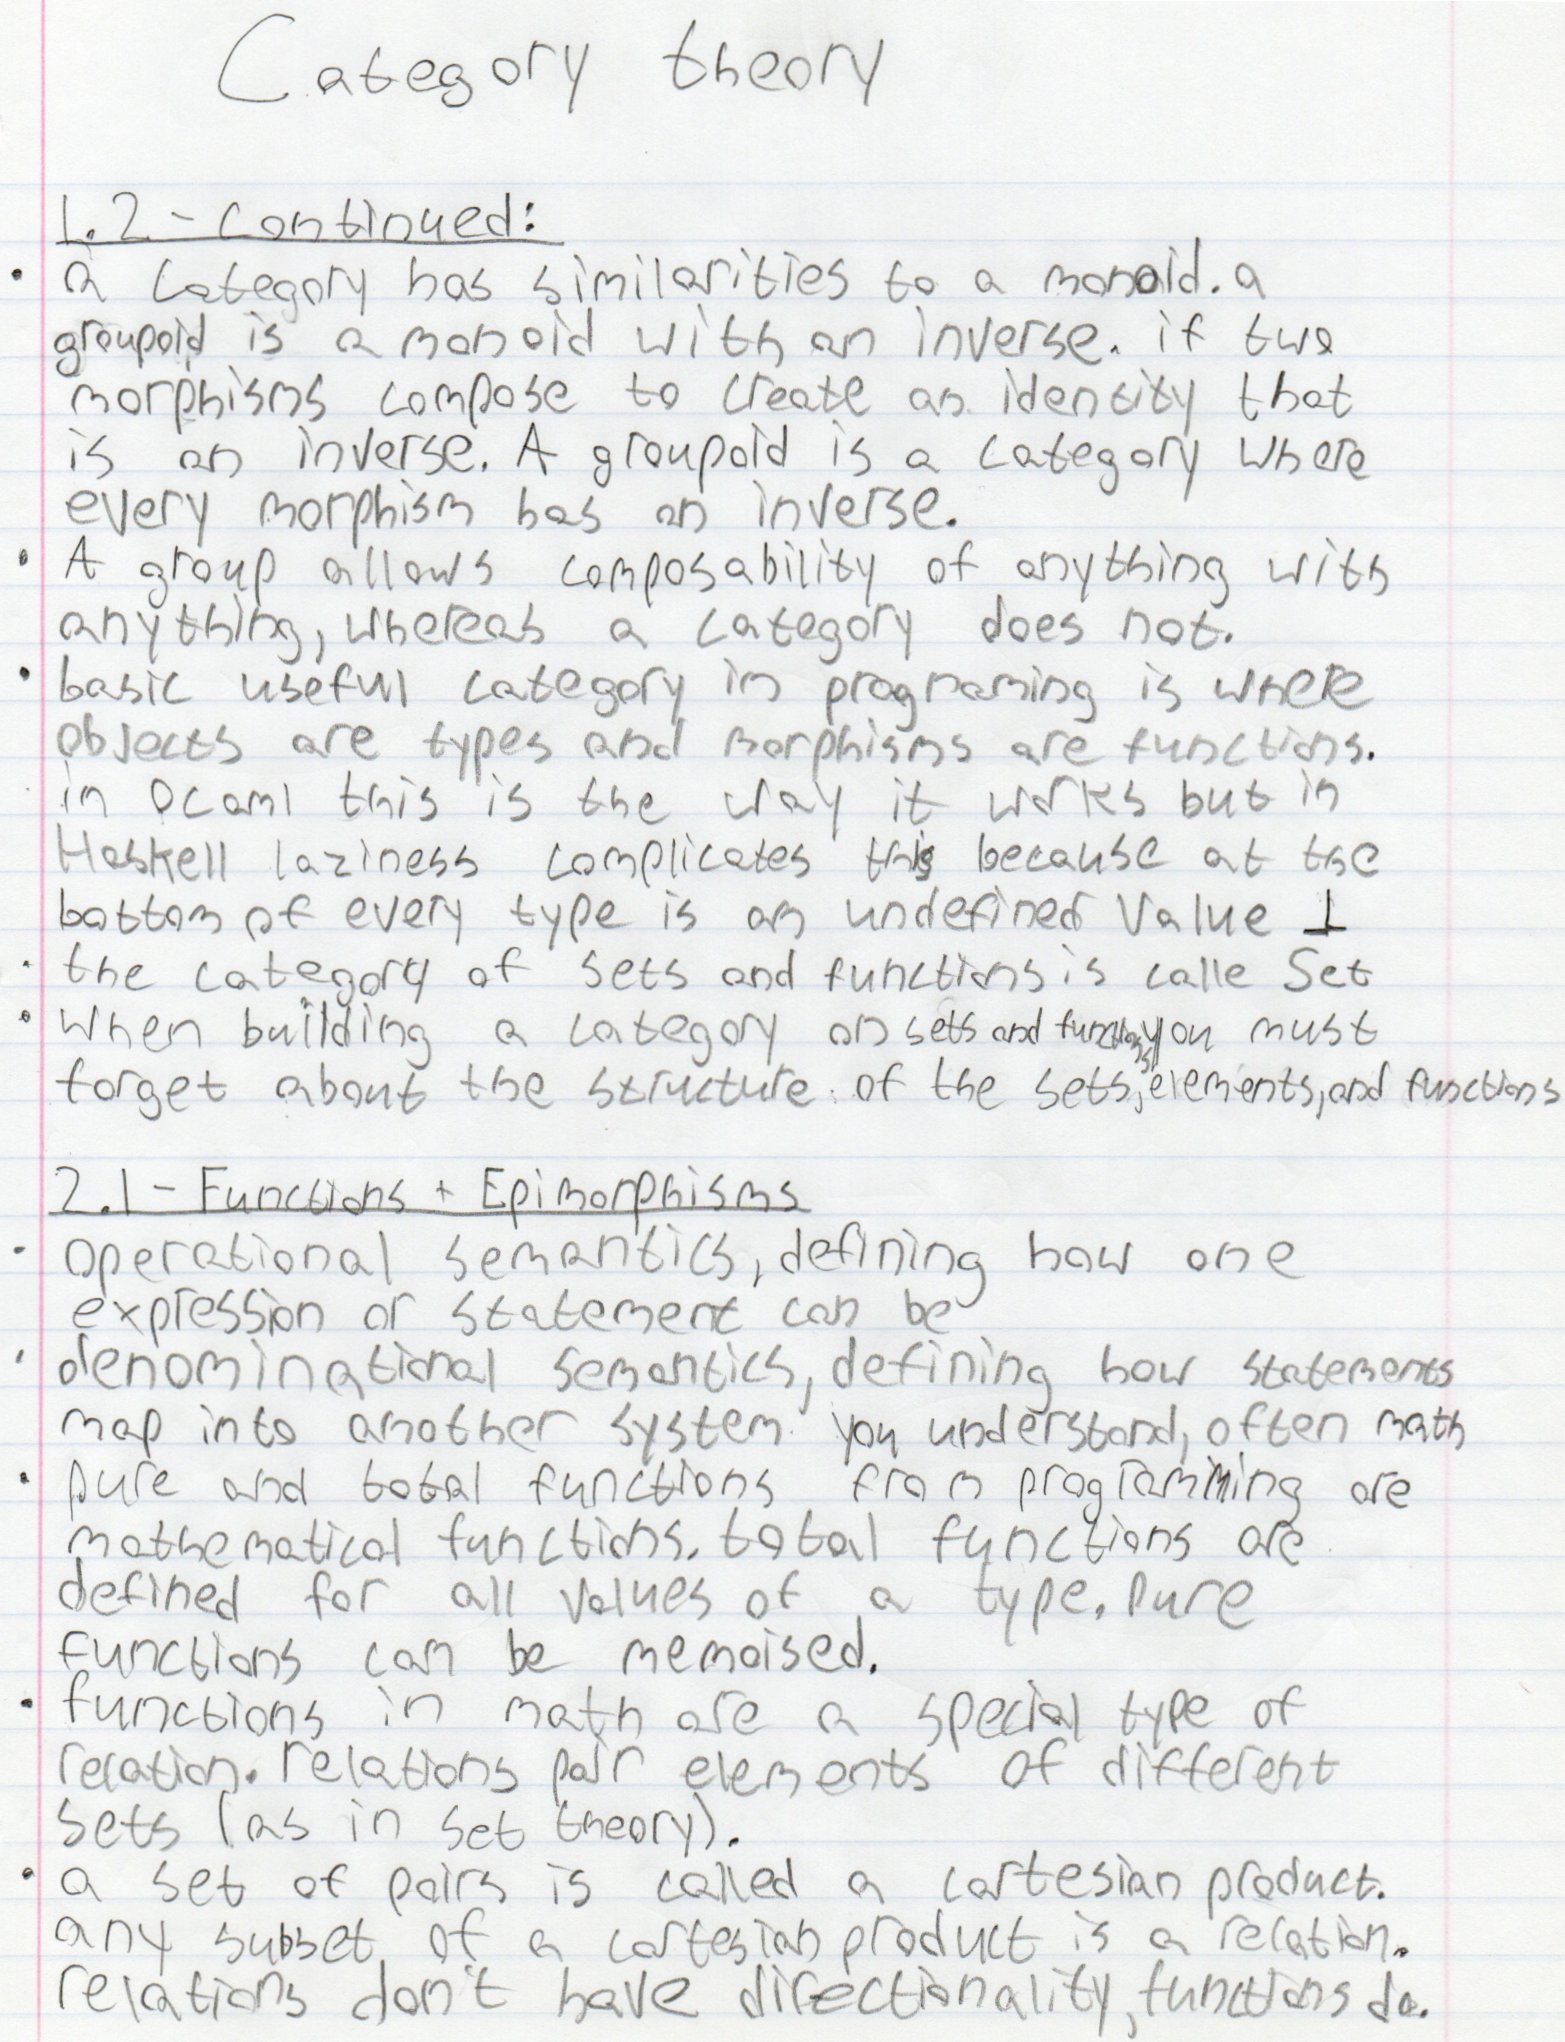 Category theory
1.2 - Continued:
• a category has similarities to a monoid. a
groupoid is a monoid with an inverse. if two
morphisms compose to create an identity that
is an inverse. A groupoid is a category where
every morphism has an inverse.
• A group allows composability of anything with
anything, whereas a category does not.
• basic useful category in programing is where
objects are types and morphisms are functions.
in Ocaml this is the way it works but in
Haskell laziness complicates this because at the
bottom of every type is an undefined value ⊥
• the category of sets and functions is calle Set
• when building a category on sets and functions, you must
forget about the structure of the sets, elements, and functions
2.1 - Functions + Epimorphisms
• operational semantics, defining how one
expression or statement can be
• denominational semantics, defining how statements
map into another system you understand, often math
• pure and total functions from programming are
mathematical functions. total functions are
defined for all values of a type. Pure
functions can be memoised.
• functions in math are a special type of
relation. relations pair elements of different
sets (as in set theory).
• a set of pairs is called a cartesian product.
any subset of a cartesian product is a relation.
relations don't have directionality, functions do.